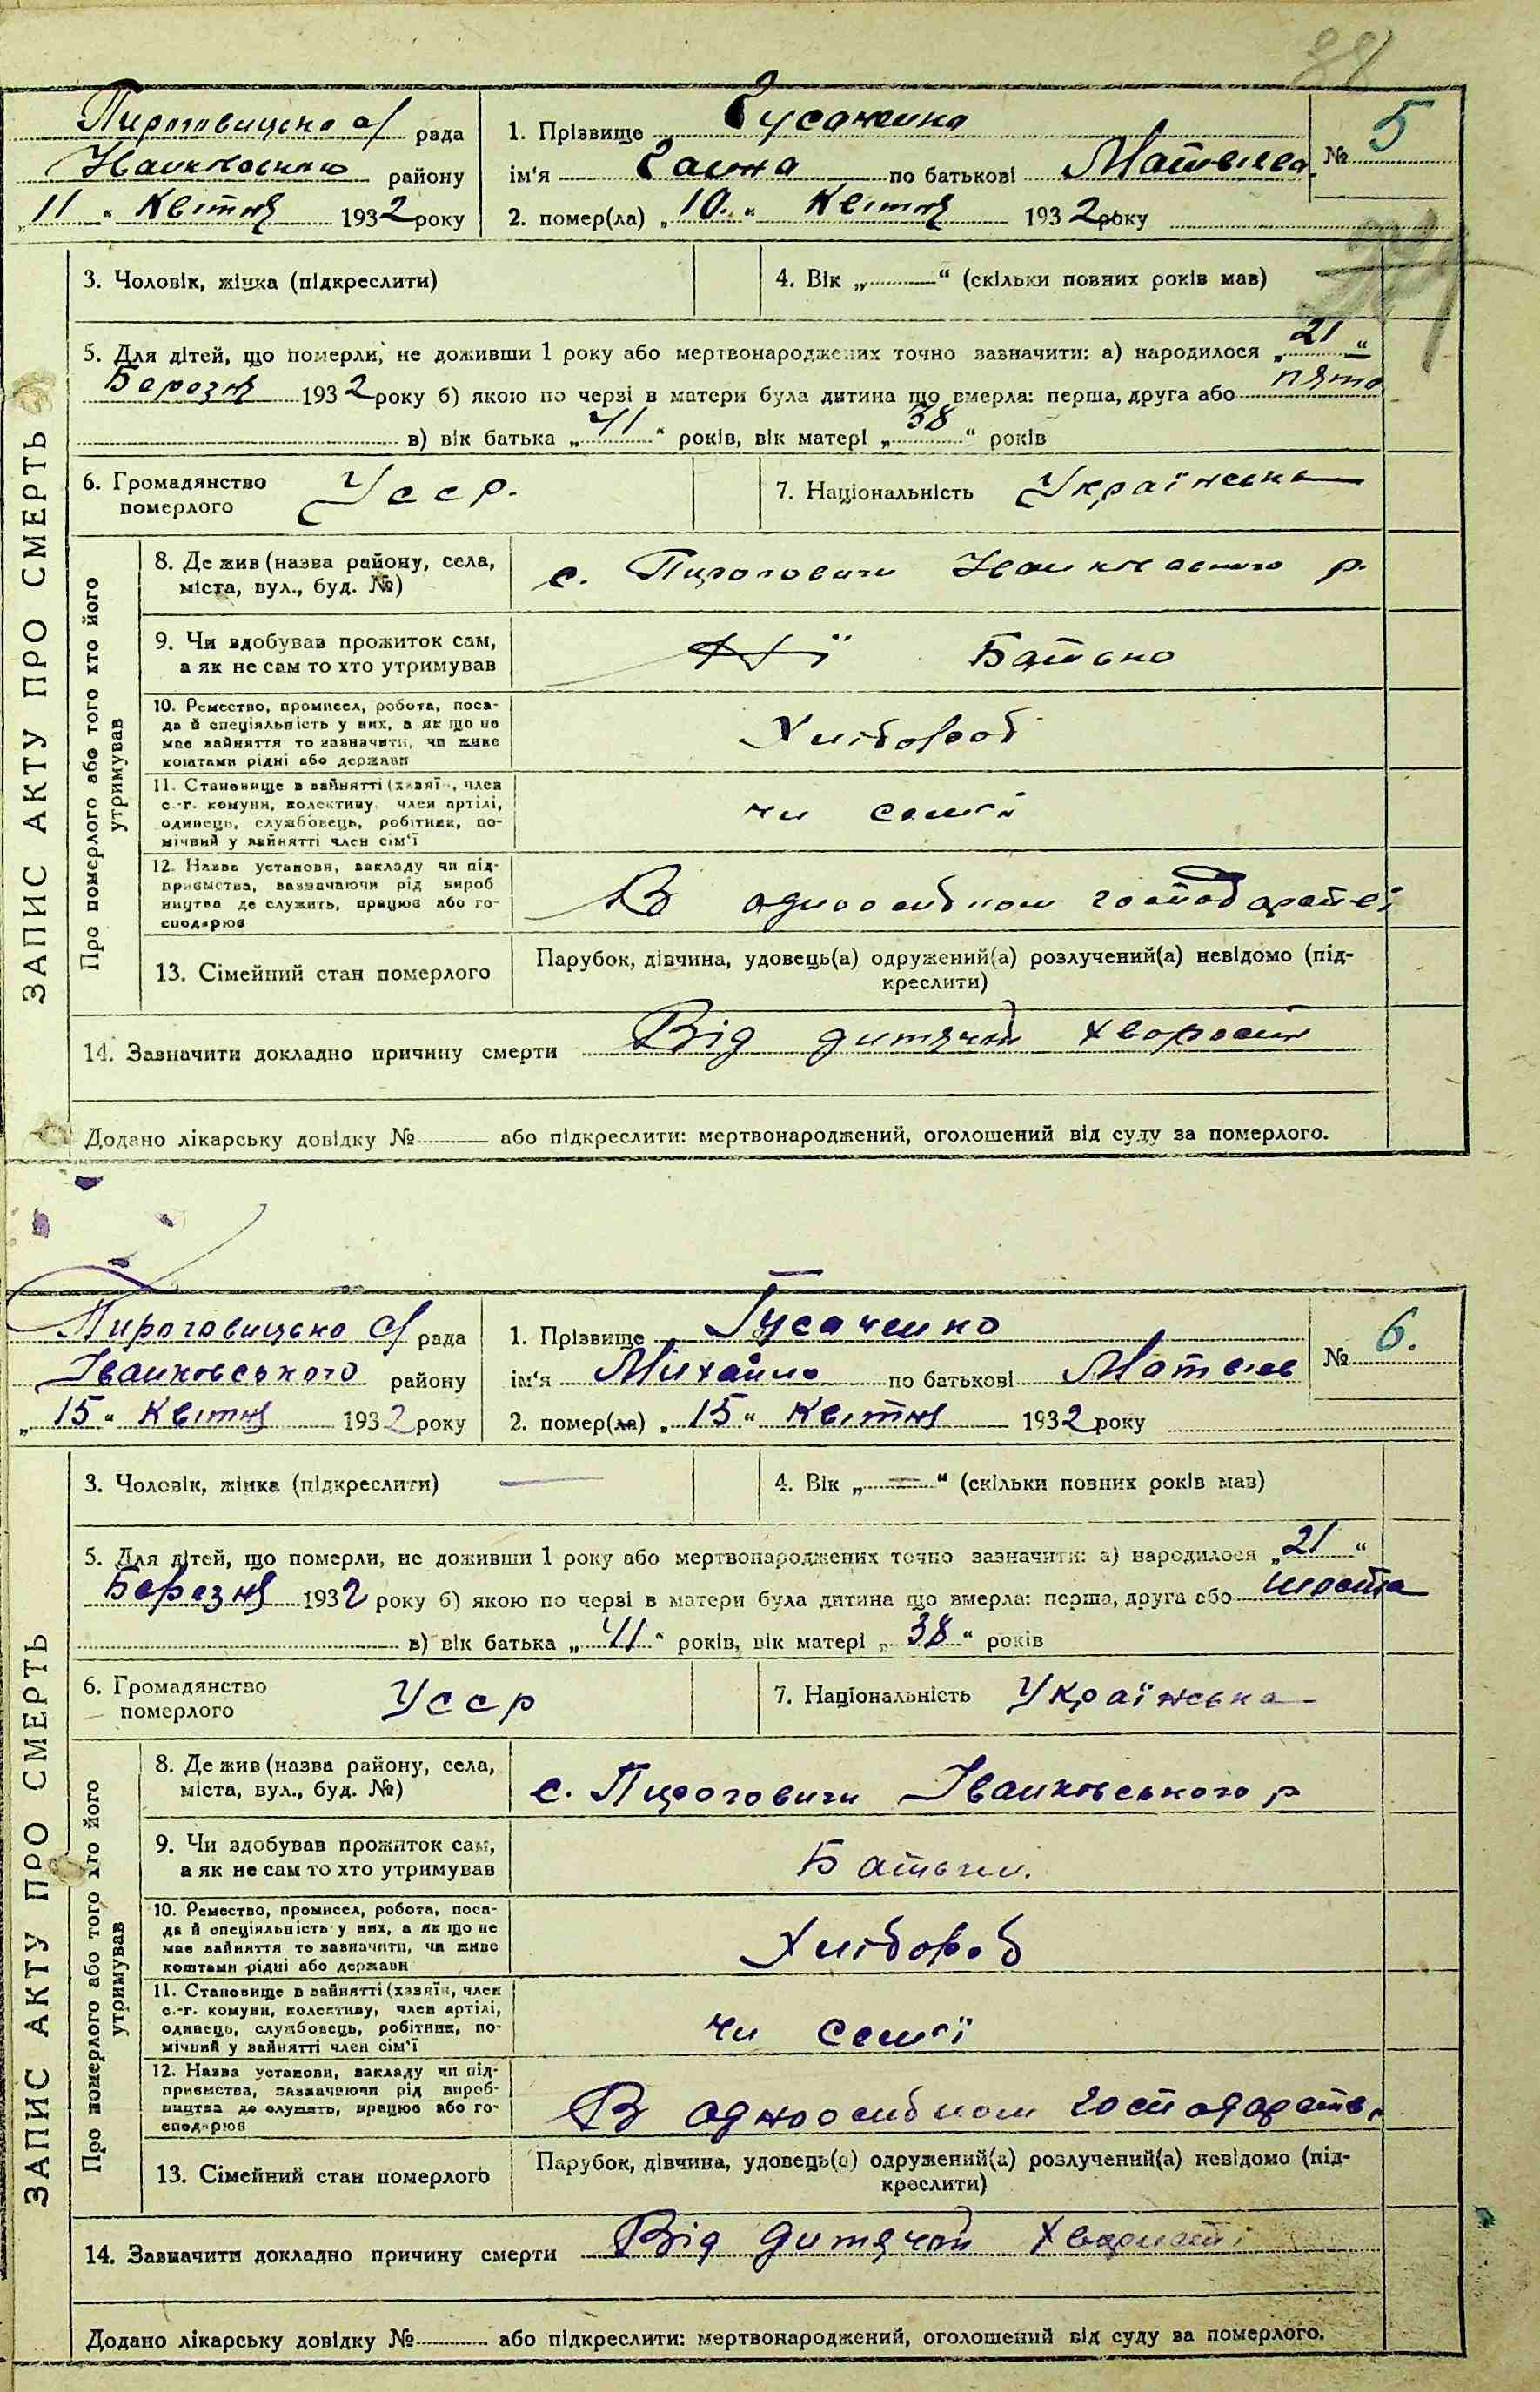 88
ЗАПИС АКТУ ПРО СМЕРТЬ
Пироговицька с/ рада
району
„11“ Квітня 1932 року
1. Прізвище Гусаченко
ім'я Ганна по батькові Матвієва
2. помер(ла) „10.“ Квітня 1932 року
№ 5
3. Чоловік, жінка (підкреслити)
4. Вік „ “ (скільки повних років мав)
5. Для дітей, що померли, не доживши 1 року або мертвонароджених точно зазначити: а) народилося „21“
Березня 1932 року б) якою по черзі в матери була дитина що вмерла: перша, друга або пята
в) вік батька „41“ років, вік матері „38“ років
6. Громадянство
померлого
Усср.
7. Національність Українська
Про померлого або того хто його
утримував
8. Де жив (назва району, села,
міста, вул., буд. №)
с. Пироговичи Іванковського р.
9. Чи здобував прожиток сам,
а як не сам то хто утримував
Батько
10. Ремество, промисел, робота, поса-
да й спеціяльність у них, а як що не
має зайняття то зазначити, чи живе
коштами рідні або держави
Хлібороб
11. Становище в зайнятті (хазяїн, член
с.-г. комуни, колективу, член артілі,
одинець, службовець, робітник, по-
мічний у зайнятті член сім'ї
чл семї
12. Назва установи, закладу чи під-
приємства, зазначаючи рід вироб
ництва де служить, працює або го-
сподарює
В одноосибном господарстві
13. Сімейний стан померлого
Парубок, дівчина, удовець(а) одружений(а) розлучений(а) невідомо (під-
креслити)
14. Зазначити докладно причину смерти Від дитячой хворости
Додано лікарську довідку № або підкреслити: мертвонароджений, оголошений від суду за померлого.
ЗАПИС АКТУ ПРО СМЕРТЬ
Пироговицька с/ рада
Іванковського району
„15“ Квітня 1932 року
1. Прізвище Гусаченко
ім'я Михайло по батькові Матвіев
2. помер(ла) „15“ Квітня 1932 року
№ 6.
3. Чоловік, жінка (підкреслити) —
4. Вік „—“ (скільки повних років мав)
5. Для дітей, що померли, не доживши 1 року або мертвонароджених точно зазначити: а) народилося „21“
Березня 1932 року б) якою по черзі в матери була дитина що вмерла: перша, друга або шоста
в) вік батька „41“ років, вік матері „38“ років
6. Громадянство
померлого
Усср
7. Національність Українська
Про померлого або того хто його
утримував
8. Де жив (назва району, села,
міста, вул., буд. №)
с. Пироговичи Іванковського р
9. Чи здобував прожиток сам,
а як не сам то хто утримував
Батьки.
10. Ремество, промисел, робота, поса-
да й спеціяльність у них, а як що не
має зайняття то зазначити, чи живе
коштами рідні або держави
Хлібороб
11. Становище в зайнятті (хазяїн, член
с.-г. комуни, колективу, член артілі,
одинець, службовець, робітник, по-
мічний у зайнятті член сім'ї
чл семї
12. Назва установи, закладу чи під-
приємства, зазначаючи рід вироб-
ництва де служить, працює або го-
сподарює
В одноосибном господарстві
13. Сімейний стан померлого
Парубок, дівчина, удовець(а) одружений(а) розлучений(а) невідомо (під-
креслити)
14. Зазначити докладно причину смерти Від дитячой хворости
Додано лікарську довідку № або підкреслити: мертвонароджений, оголошений від суду за померлого.